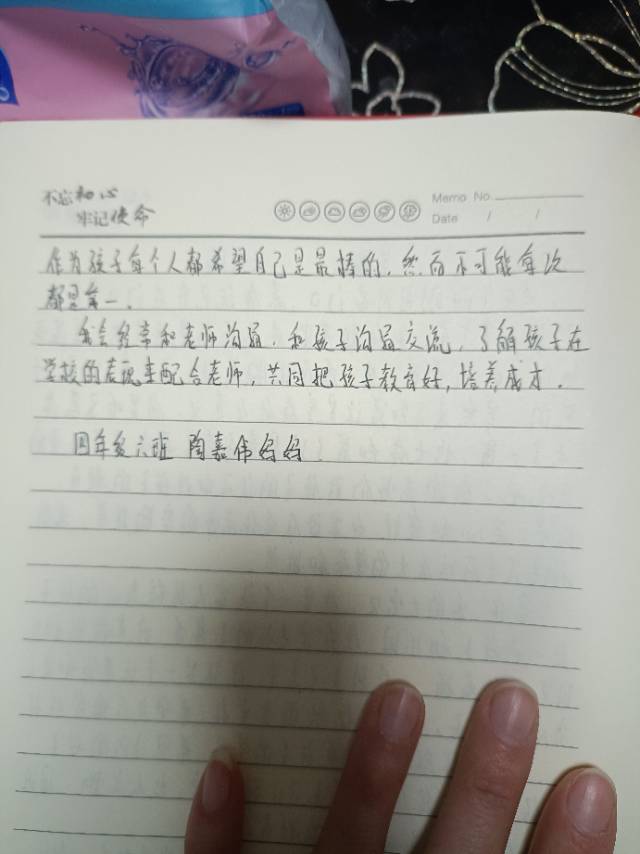 不忘初心
牢记使命
Memo No.
Date / /
作为孩子每个人都希望自己是最棒的，然而不可能每次
都是第一。
我会经常和老师沟通，和孩子沟通交流，了解孩子在
学校的表现来配合老师，共同把孩子教育好，培养成才。
四年级六班 陶嘉伟妈妈